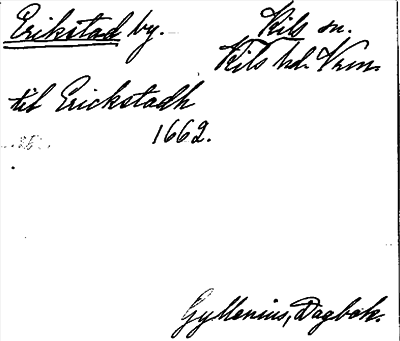 Erikstad by. Kils sn.
Kils hd. Vrm.
til Erickstadh
1662.
Gyllenius, Dagbok.